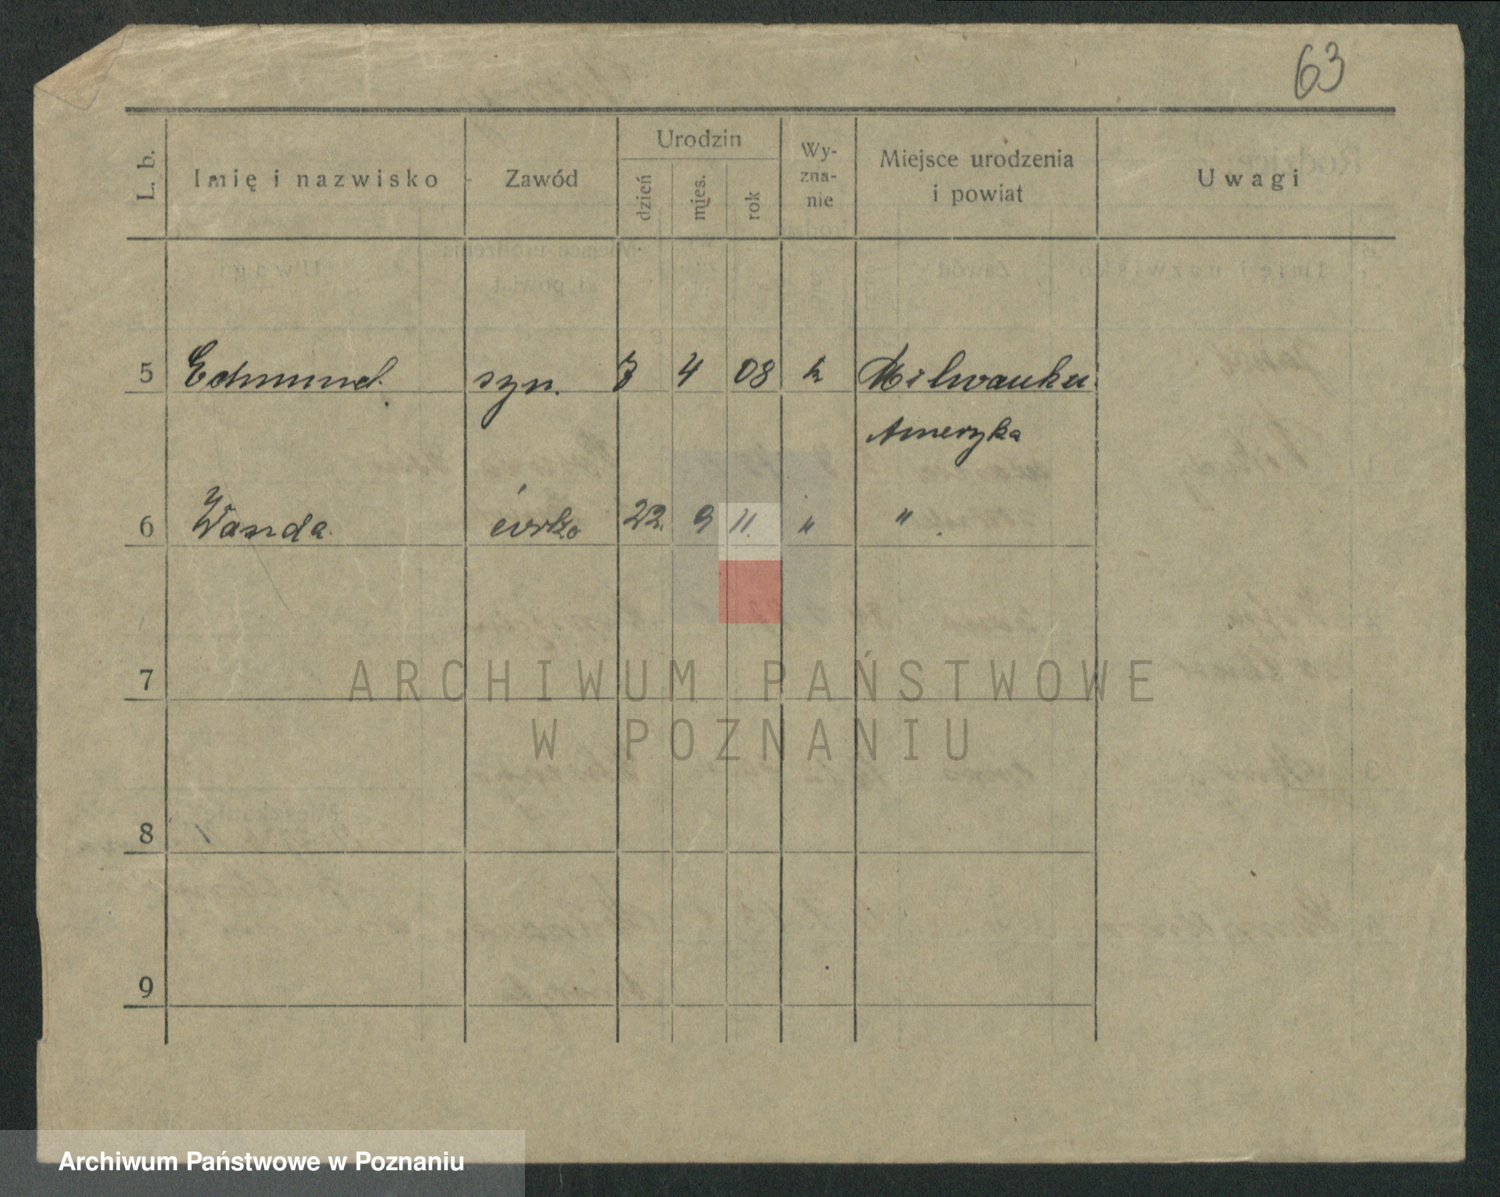 63
L. b. Imię i nazwisko Zawód Urodzin dzień mies. rok Wy- zna- nie Miejsce urodzenia i powiat Uwagi
5 Edmund syn. 7 4 08 k Milwaukee
Ameryka
6 Wanda córka 22. 9 11. " "
7
ARCHIWUM PAŃSTWOWE
W POZNANIU
8
9
Archiwum Państwowe w Poznaniu